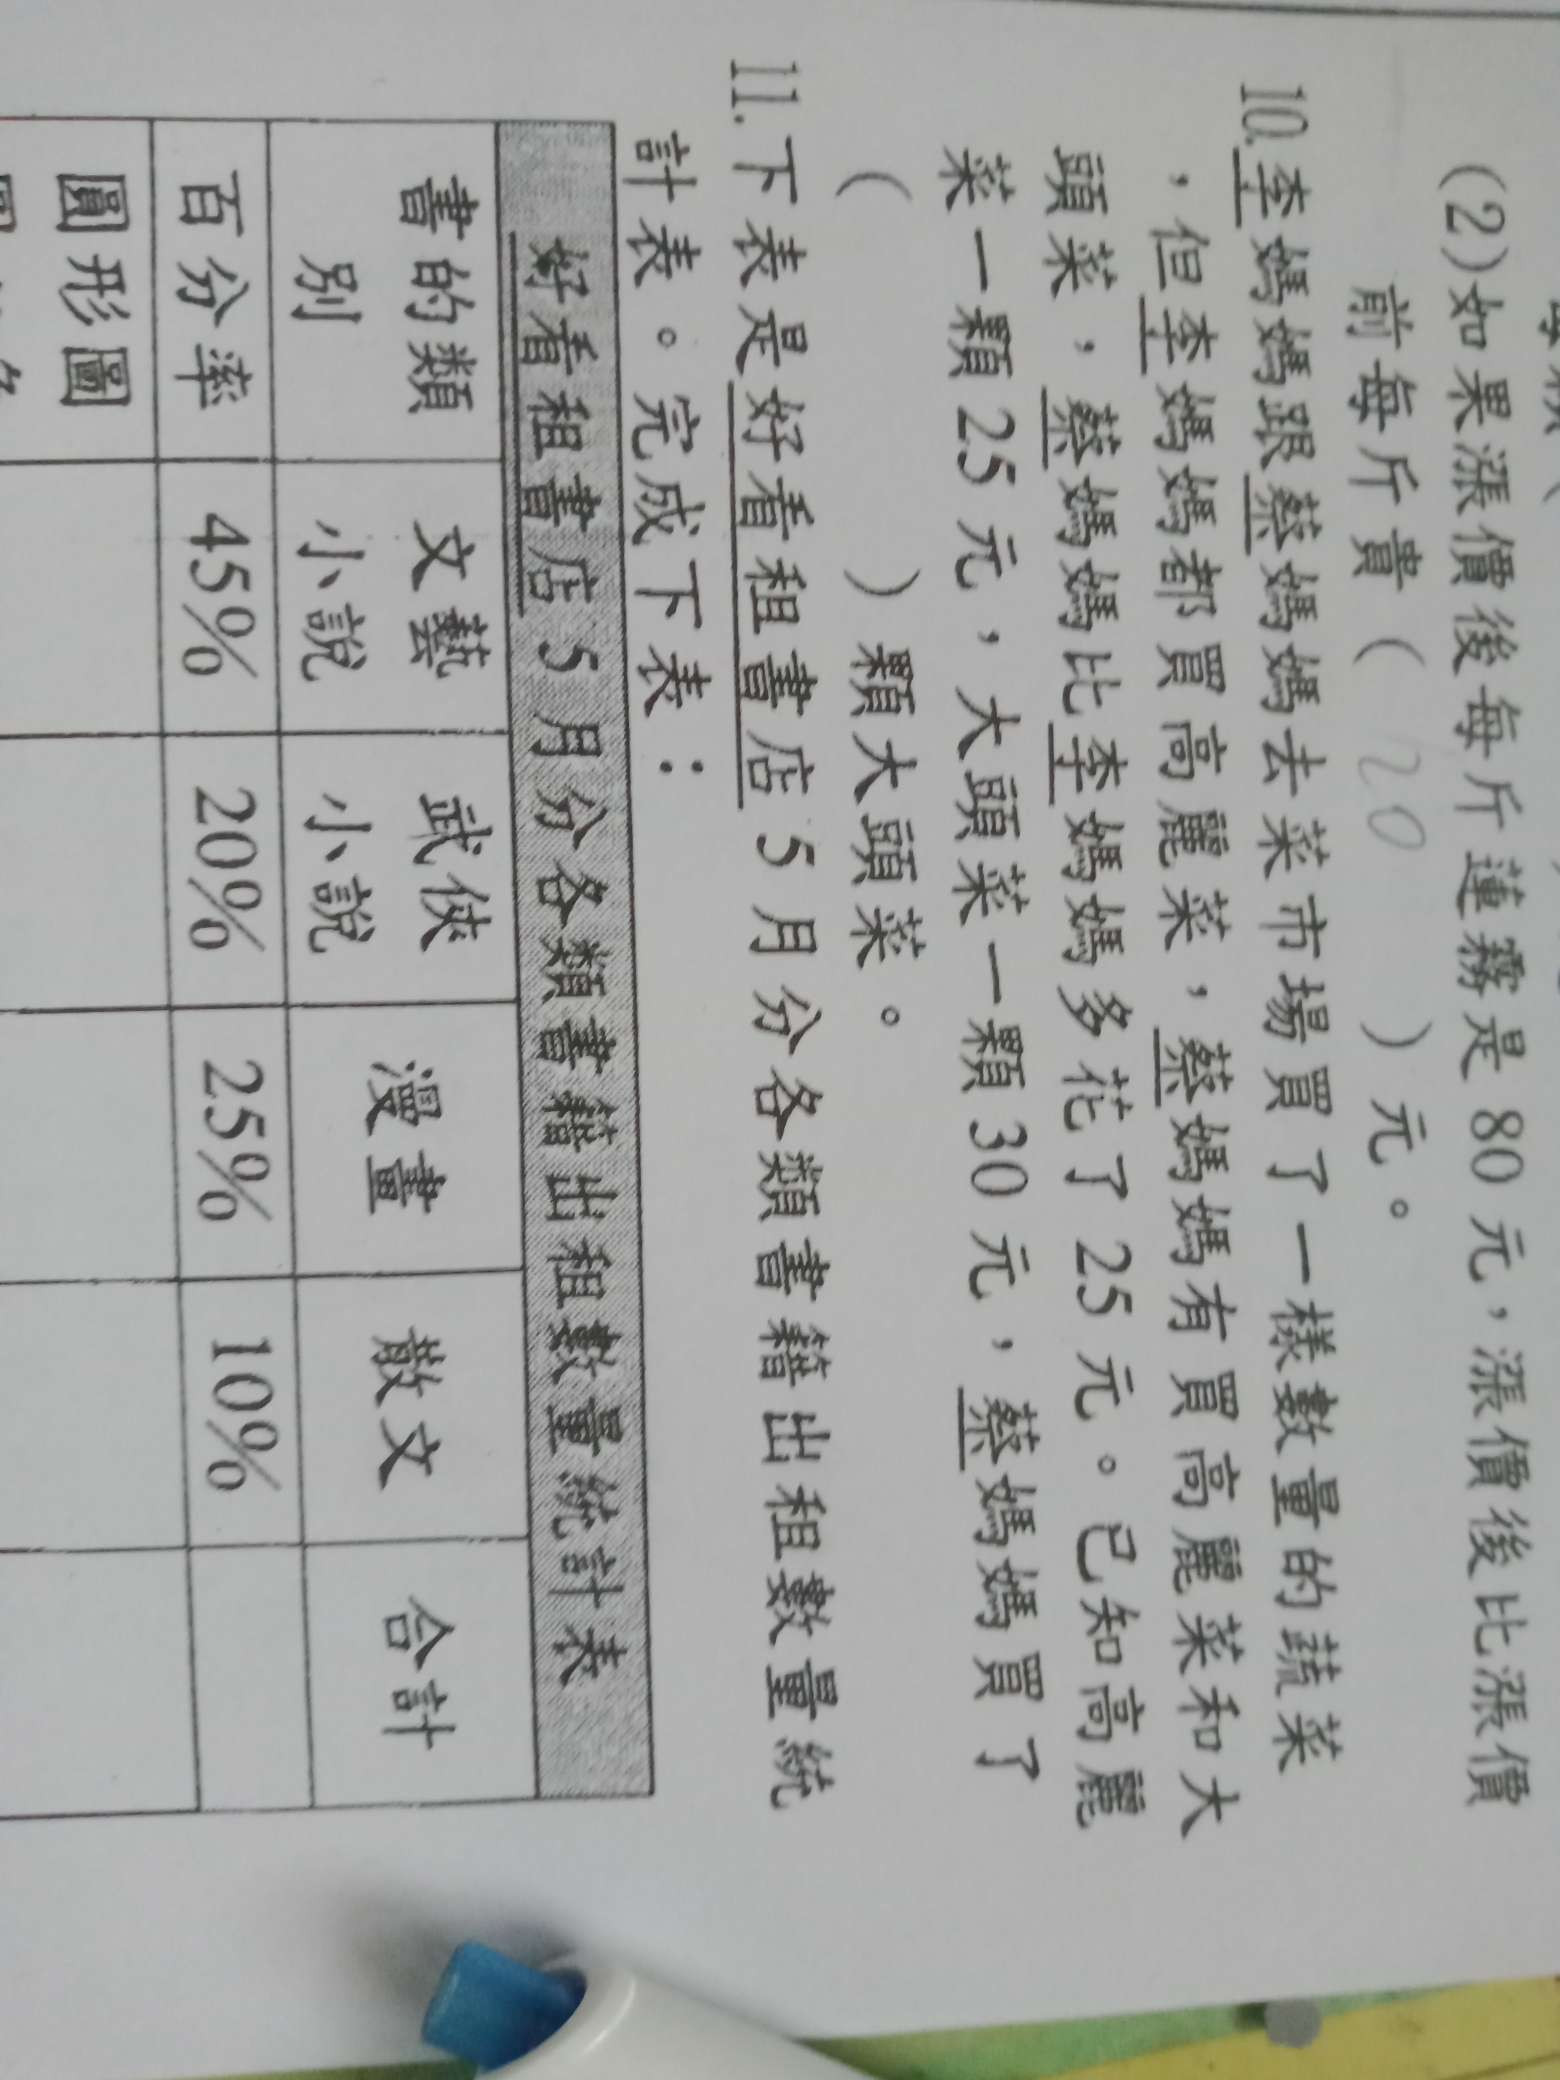 (2)如果漲價後每斤蓮霧是 80 元，漲價後比漲價
前每斤貴（ 20 ）元。
10.李媽媽跟蔡媽媽去菜市場買了一樣數量的蔬菜
，但李媽媽都買高麗菜，蔡媽媽有買高麗菜和大
頭菜，蔡媽媽比李媽媽多花了 25 元。已知高麗
菜一顆 25 元，大頭菜一顆 30 元，蔡媽媽買了
（ ）顆大頭菜。
11.下表是好看租書店 5 月分各類書籍出租數量統
計表。完成下表：
好看租書店 5 月分各類書籍出租數量統計表
書的類別 文藝小說 武俠小說 漫畫 散文 合計
百分率 45% 20% 25% 10%
圓形圖